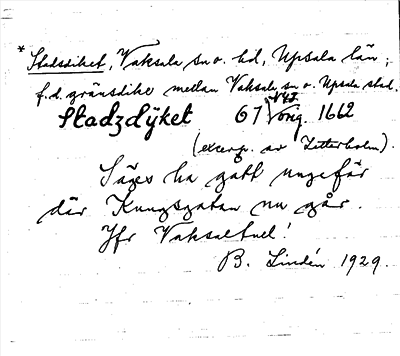 *Stadsdiket, Vaksala sn o. hd, Upsala län;
f.d. gränsdike mellan Vaksala sn o. Upsala stad.
Stadzdÿket 67 orig. 1662
(excerp. av Zetterholm).
Säges ha gått ungefär
där Kungsgatan nu går.
Jfr Vaksaltull!
B. Lindén 1929.